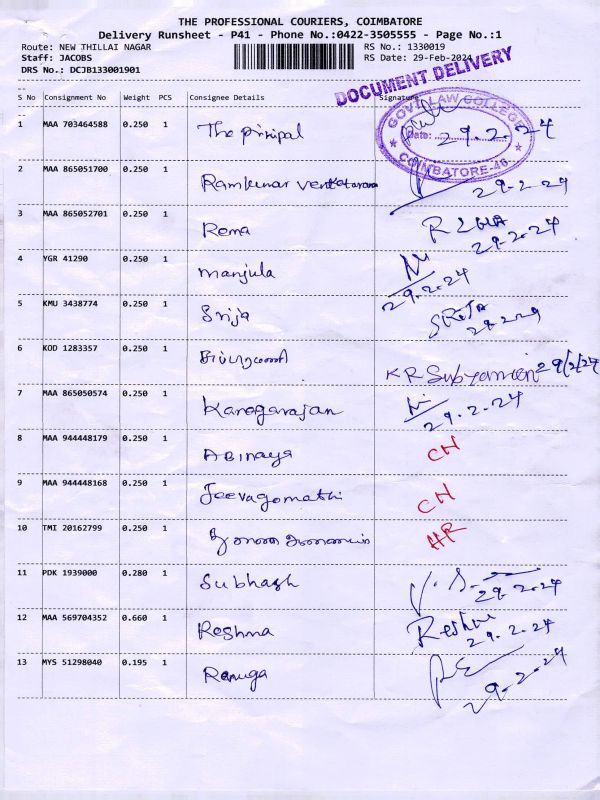 THE PROFESSIONAL COURIERS, COIMBATORE
Delivery Runsheet - P41 - Phone No.:0422-3505555 - Page No.:1
Route: NEW THILLAI NAGAR RS No.: 1330019
Staff: JACOBS RS Date: 29-Feb-2024
DRS No.: DCJB133001901
DOCUMENT DELIVERY
S No Consignment No Weight PCS Consignee Details Signature
GOVT. LAW COLLEGE
Date:
COIMBATORE-46
1 MAA 703464588 0.250 1 The prinipal 29.2.24
2 MAA 865051700 0.250 1 Ramkumar 29-2-24
3 MAA 865052701 0.250 1 Rema 29.2.24
4 YGR 41290 0.250 1 manjula 29.2.24
5 KMU 3438774 0.250 1 Srija
6 KOD 1283357 0.250 1 KR 29/2/24
7 MAA 865050574 0.250 1 Kanagarajan 29.2.24
8 MAA 944448179 0.250 1 ABinaya CH
9 MAA 944448168 0.250 1 Jeevagomathi CH
10 TMI 20162799 0.250 1 HR
11 PDK 1939000 0.280 1 Subhash 29.2.24
12 MAA 569704352 0.660 1 Reshma 29.2.24
13 MYS 51298040 0.195 1 29-2-24